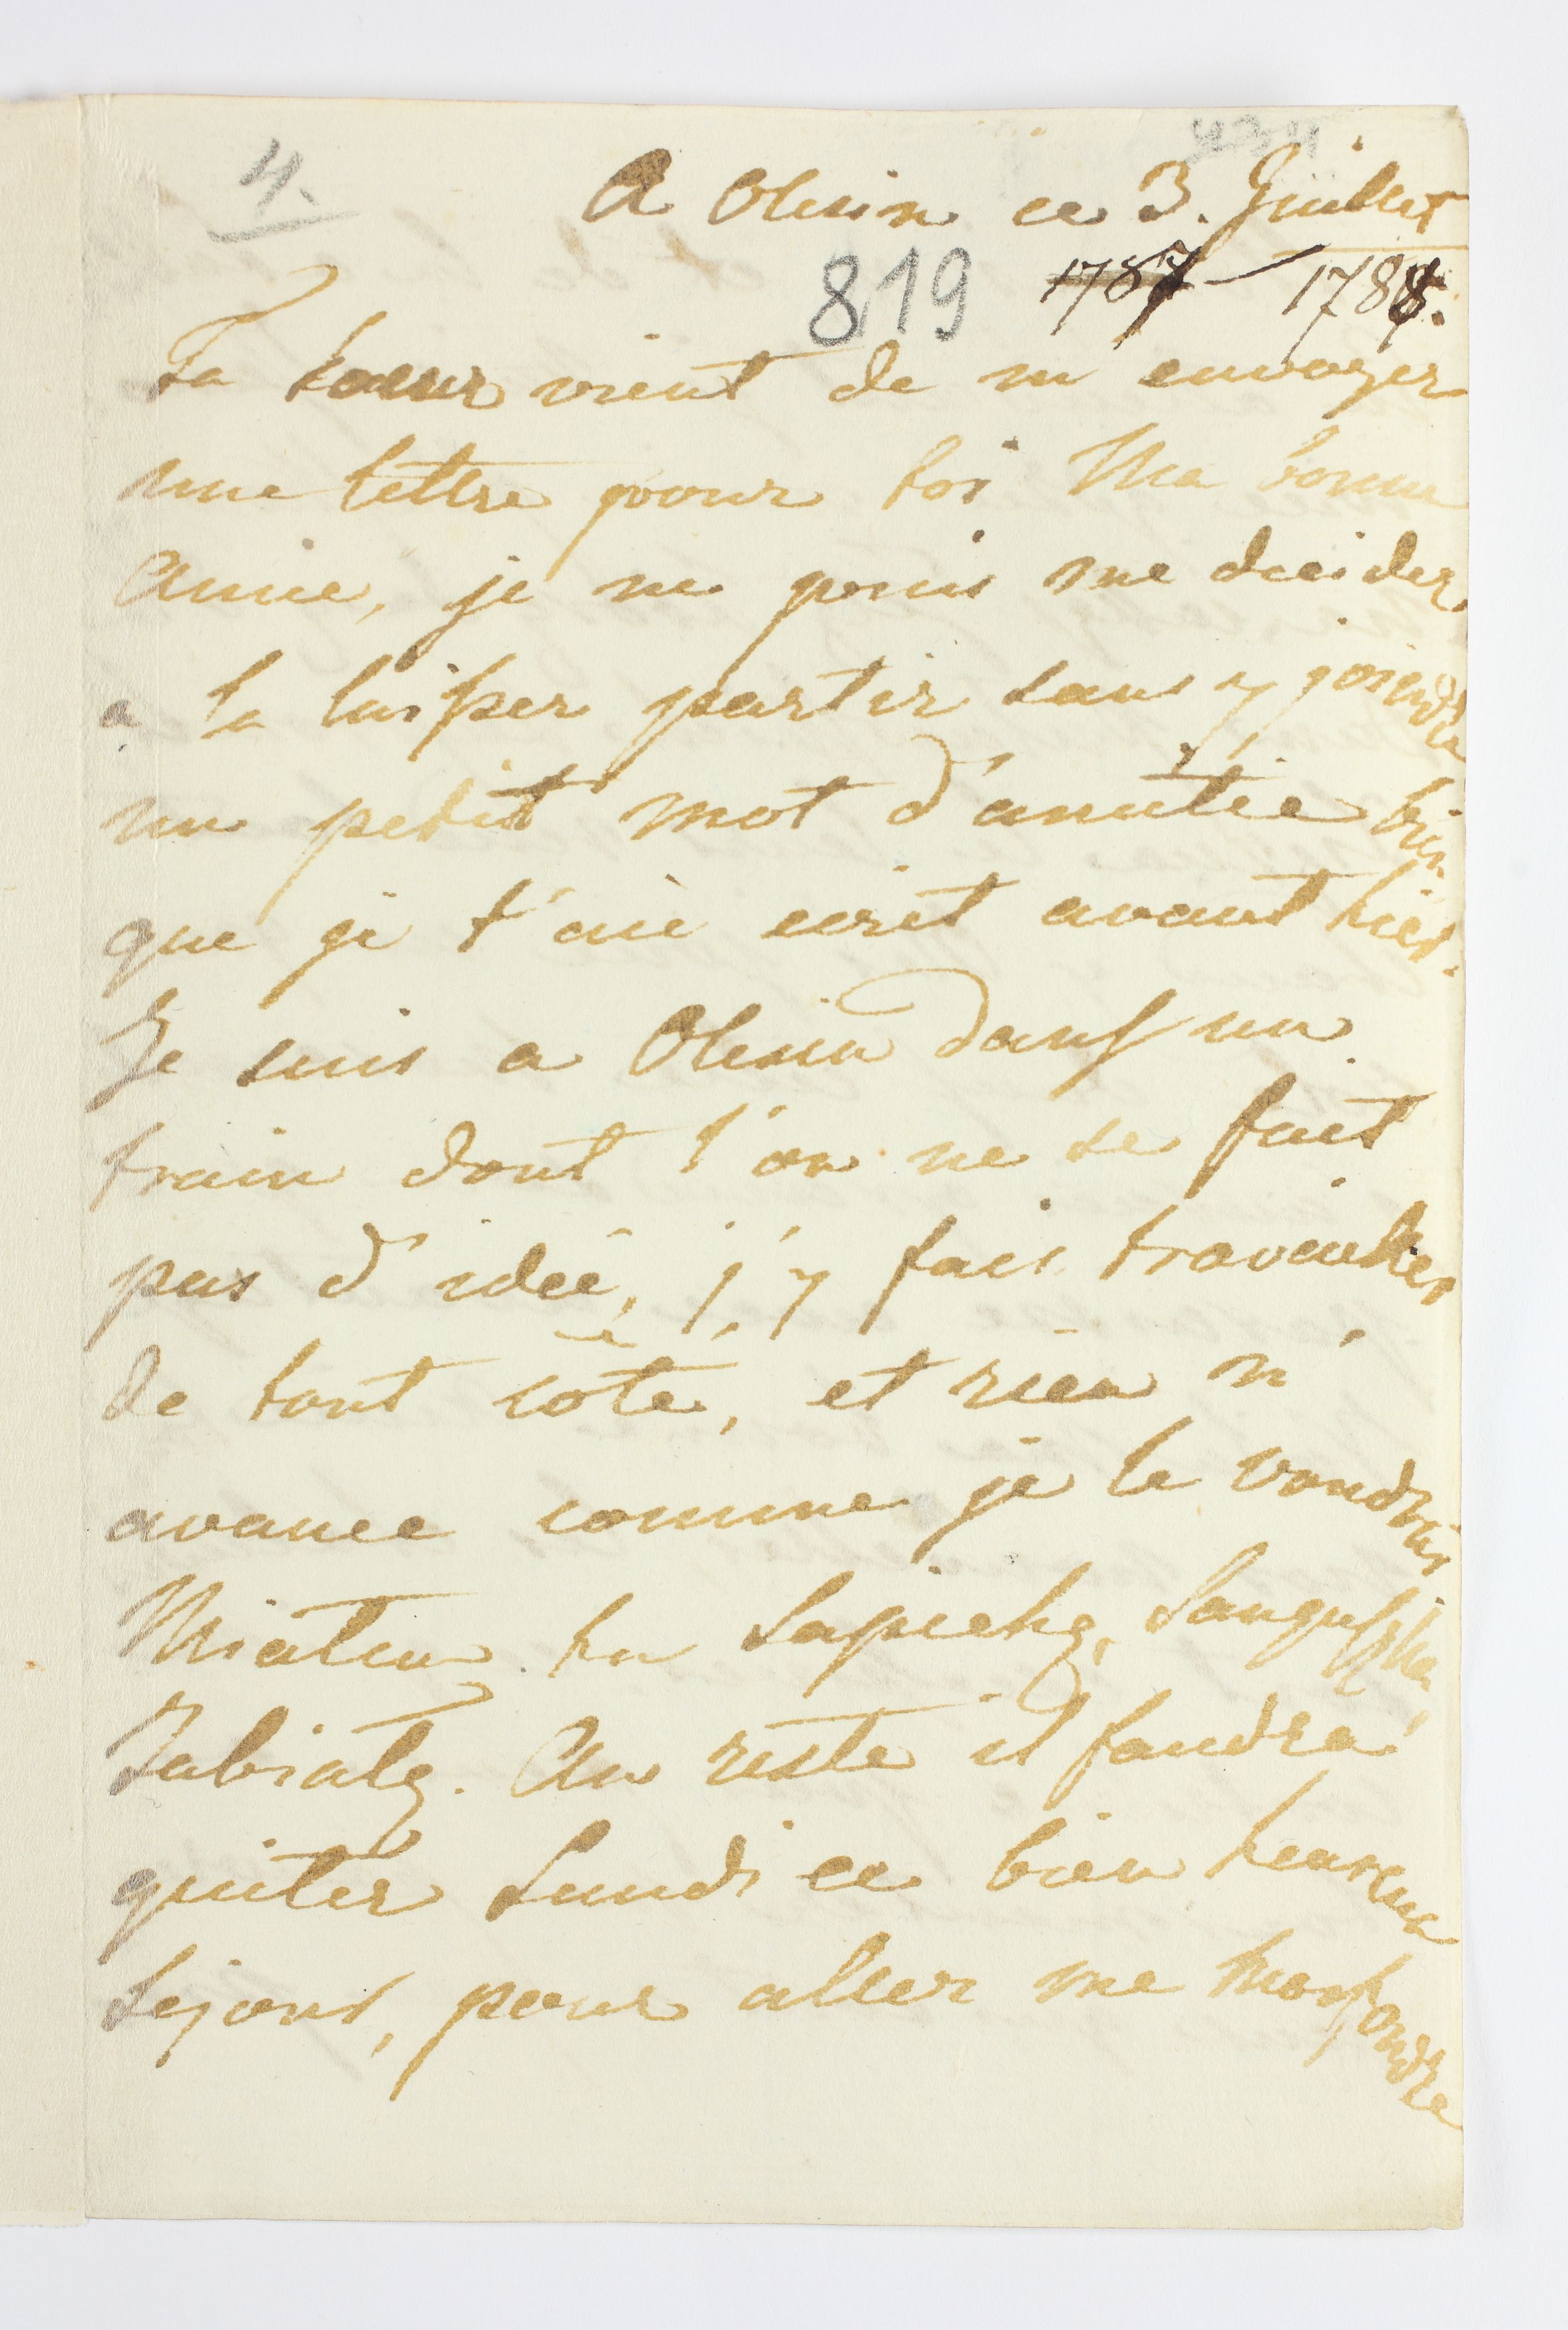 4.
A Olesin ce 3. Juillet
819 1787 - 1788.
Ta soeur vient de m envoyer
une lettre pour toi Ma bonne
Amie, je ne puis me decider
a la laisser partir sans y joindre
un petit mot d'amitie bien
que je t'aie ecrit avant hier.
Je suis a Olesin dans un
train dont l'on ne se fait
pas d'idée, j'y fais travailler
de tout côté, et rien n'
avance comme je le voudrais
Miałem tu Sapiehę,
Jabłę. Au reste il faudra
quiter Lundi ce bien heureux
sejour, pour aller me morfondre